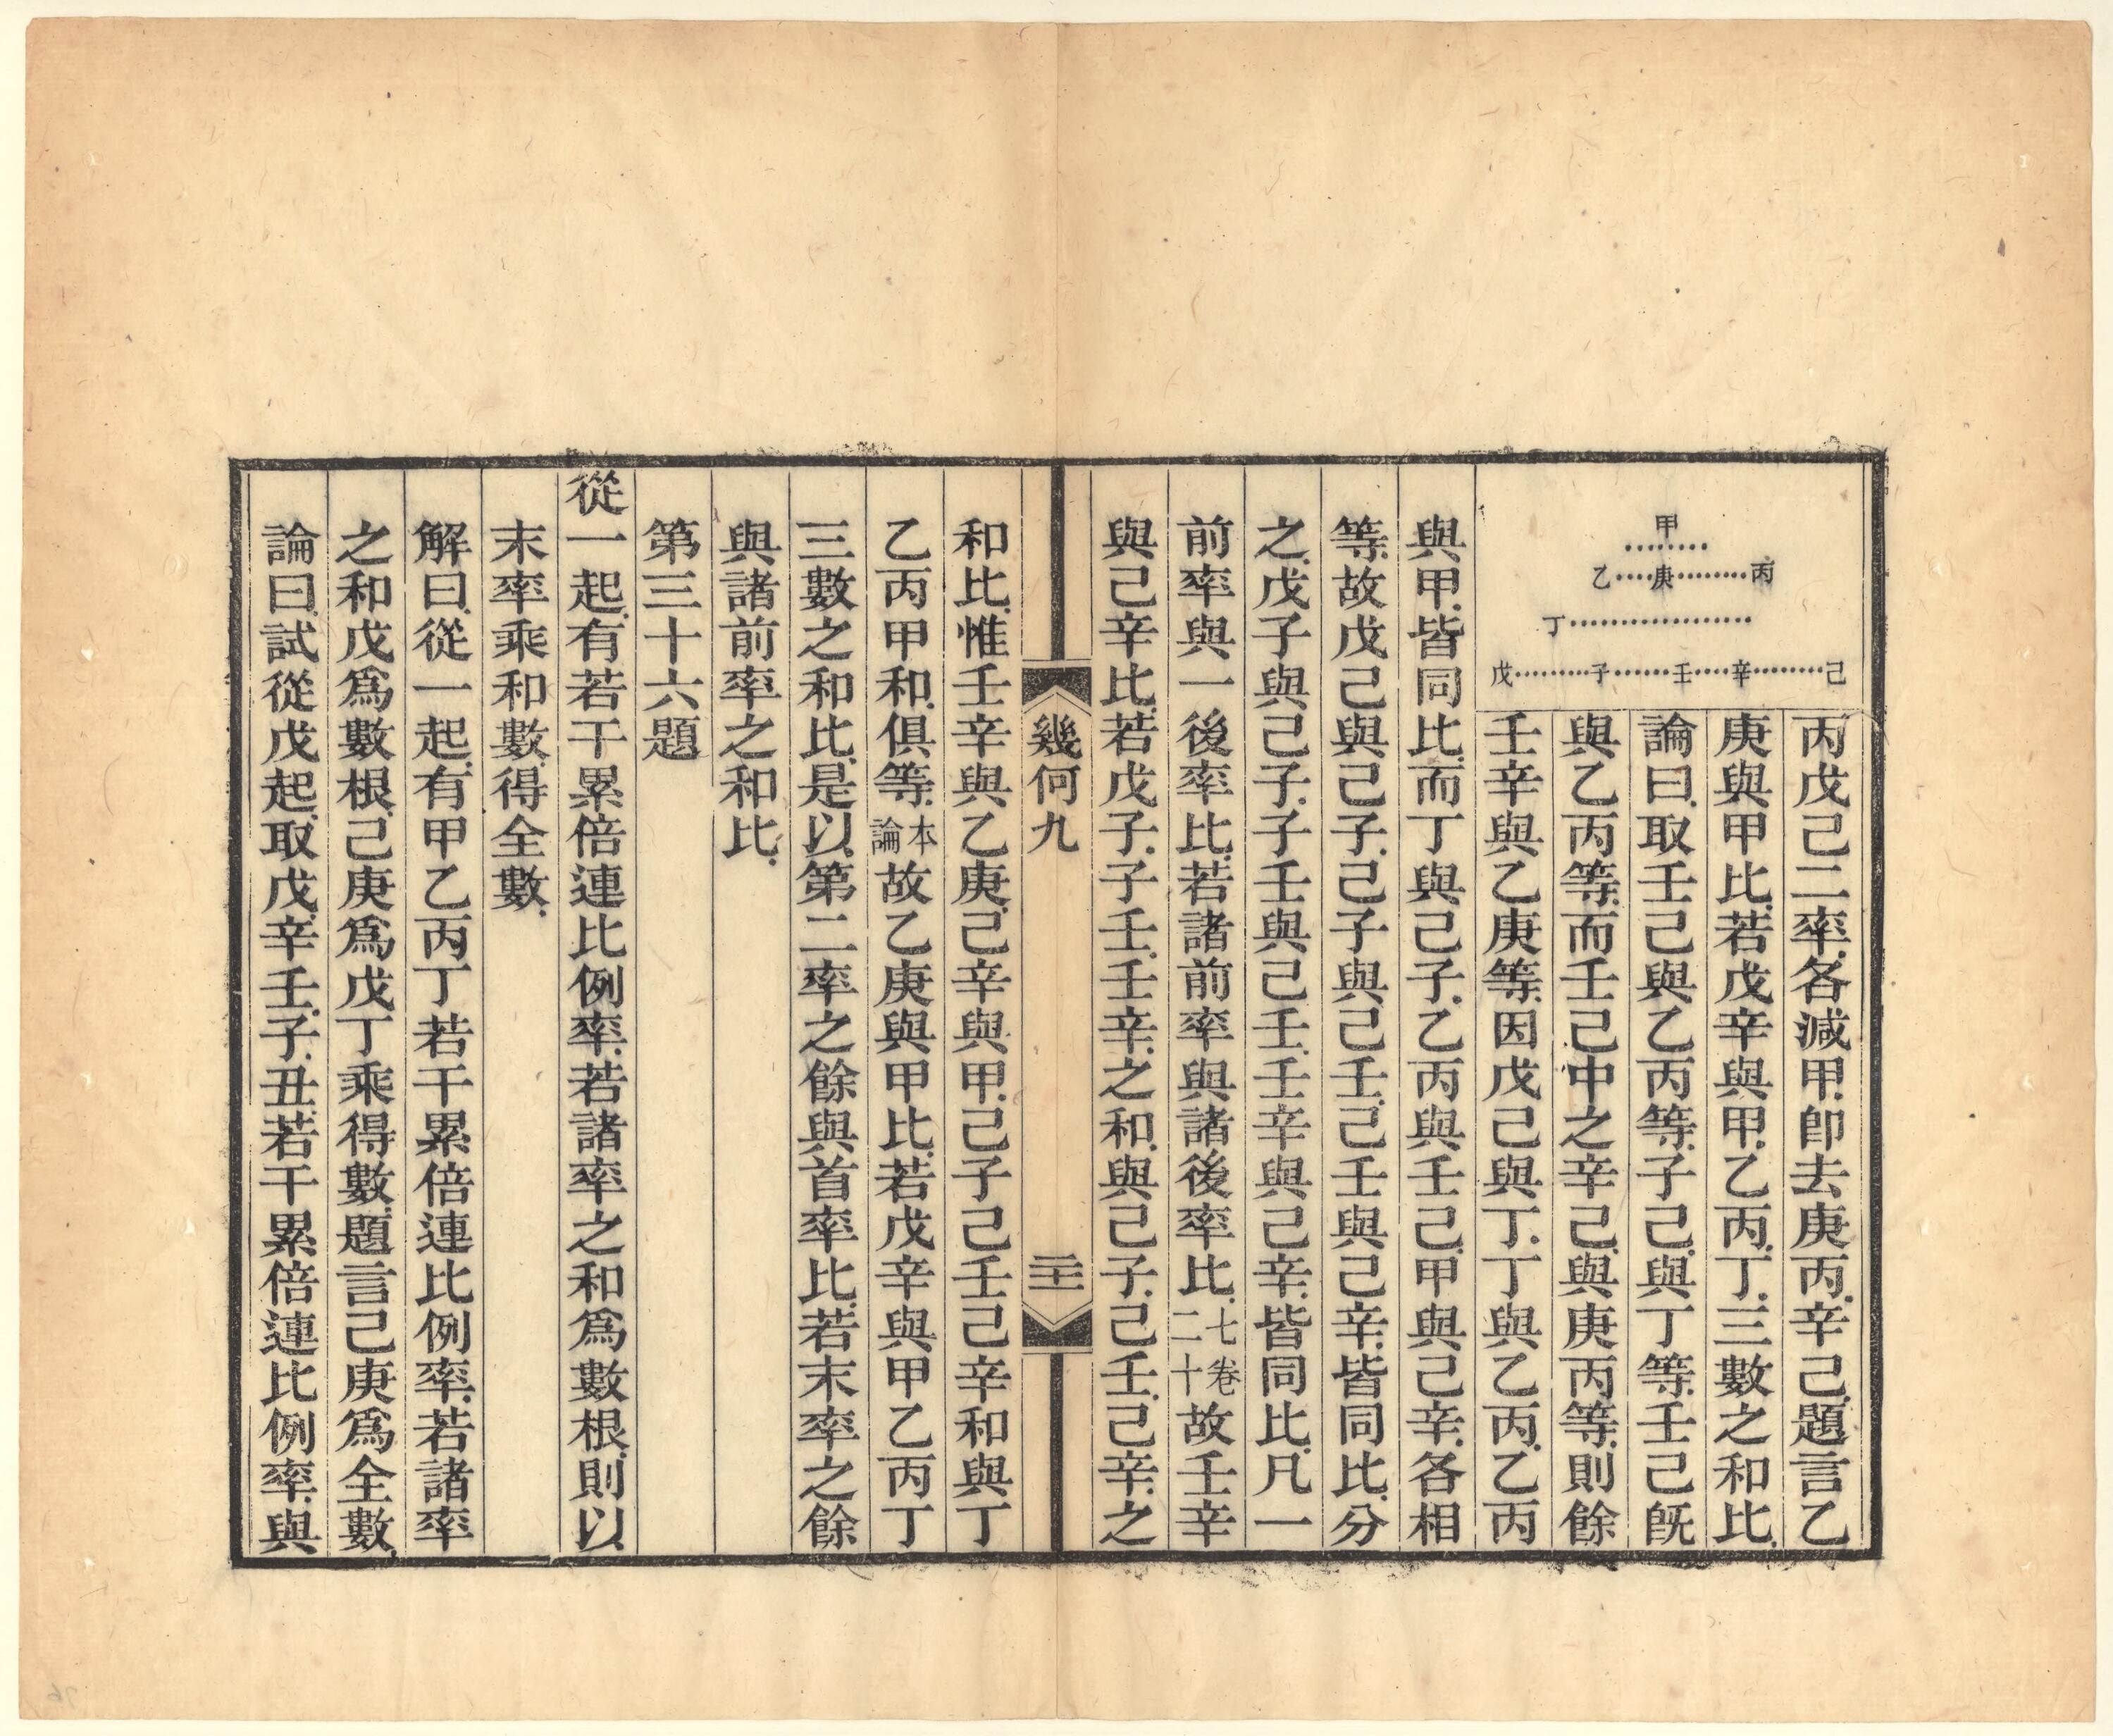 甲
乙 庚 丙
丁
戊 子 壬 辛 己
丙戊己二率各減甲卽去庚丙辛己題言乙
庚與甲比若戊辛與甲乙丙丁三數之和比
論曰取壬己與乙丙等子己與丁等壬己旣
與乙丙等而壬己中之辛己與庚丙等則餘
壬辛與乙庚等因戊己與丁丁與乙丙乙丙
與甲皆同比而丁與己子乙丙與壬己甲與己辛各相
等故戊己與己子己子與己壬己壬與己辛皆同比分
之戊子與己子子壬與己壬壬辛與己辛皆同比凡一
前率與一後率比若諸前率與諸後率比七卷二十故壬辛
與己辛比若戊子子壬壬辛之和與己子己壬己辛之
幾何九 三十一
和比惟壬辛與乙庚己辛與甲己子己壬己辛和與丁
乙丙甲和俱等本論故乙庚與甲比若戊辛與甲乙丙丁
三數之和比是以第二率之餘與首率比若末率之餘
與諸前率之和比
第三十六題
從一起有若干累倍連比例率若諸率之和爲數根則以
末率乘和數得全數
解曰從一起有甲乙丙丁若干累倍連比例率若諸率
之和戊爲數根己庚爲戊丁乘得數題言己庚爲全數
論曰試從戊起取戊辛壬子丑若干累倍連比例率與